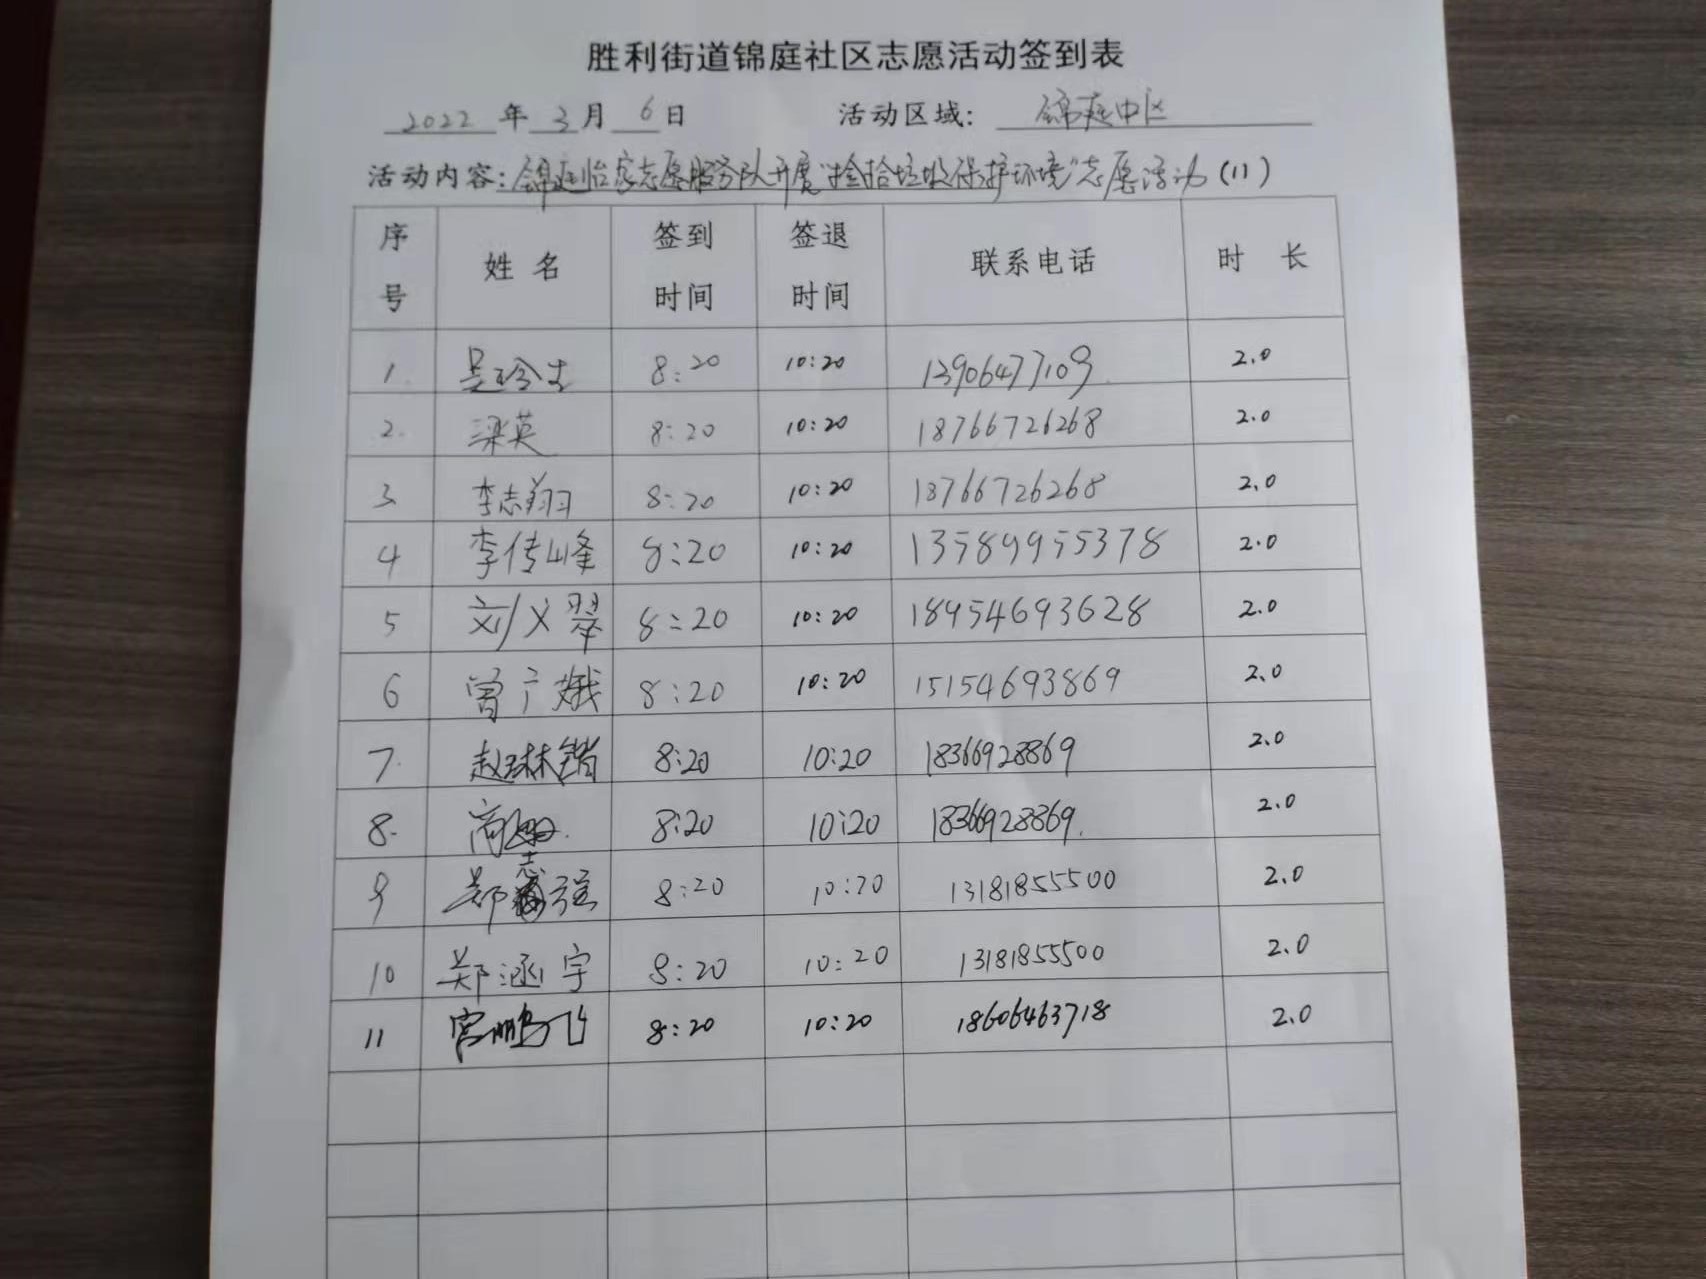 胜利街道锦庭社区志愿活动签到表
2022年3月6日 活动区域：锦庭中区
活动内容：锦庭怡家志愿服务队开展"捡拾垃圾保护环境"志愿活动(11)
序号 姓名 签到时间 签退时间 联系电话 时长
1. 吴玲 8:20 10:20 13906477109 2.0
2. 梁英 8:20 10:20 18766726268 2.0
3 李志翔 8:20 10:20 18766726268 2.0
4 李传峰 8:20 10:20 13589955378 2.0
5 刘义翠 8:20 10:20 18954693628 2.0
6 曾广娥 8:20 10:20 15154693869 2.0
7. 赵琳锴 8:20 10:20 18366928869 2.0
8. 商 8:20 10:20 18366928869. 2.0
9 郑志强 8:20 10:20 13181855500 2.0
10 郑涵宇 8:20 10:20 13181855500 2.0
11 宫鹏飞 8:20 10:20 18606463718 2.0